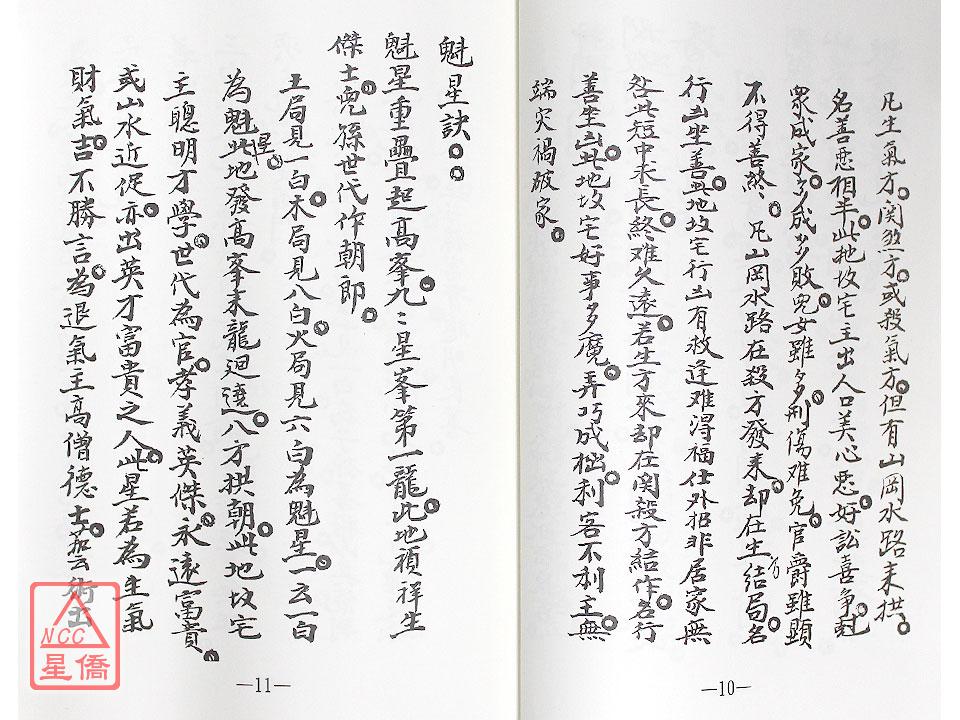 凡生氣方。関煞方。或殺氣方。但有山岡水路来拱。
名善惡相半。此地坟宅主出人口美心惡。好訟喜爭。對
眾成家。多成多敗。兒女雖多。刑傷难免。官爵雖顕
不得善終。凡山岡水路在殺方發来。却在生方結局。名
行凶坐善。此地坟宅行凶有救逢难得福仕外招非居家無
咎。此短中求長。終难久遠。若生方來却在関殺方結作。名行
善坐凶。此地坟宅好事多魔。弄巧成拙。利客不利主。無
端灾禍破家。
魁星訣。。
魁星重疊起高峯。九二星峯第一龍。此地禎祥生
傑士。兒孫世代作朝郎。
工局見一白。木局見八白。火局見六白為魁星。一云一白
為魁星。此地發高峯来龍迴遶。八方拱朝。此地坟宅
主聰明才學。世代為官。孝義英傑。永遠富貴。
或山水近促。亦出英才富貴之人。此星若為生氣
財氣。吉不勝言。為退氣主高僧德士。芸術士
—10—
—11—
NCC
星僑